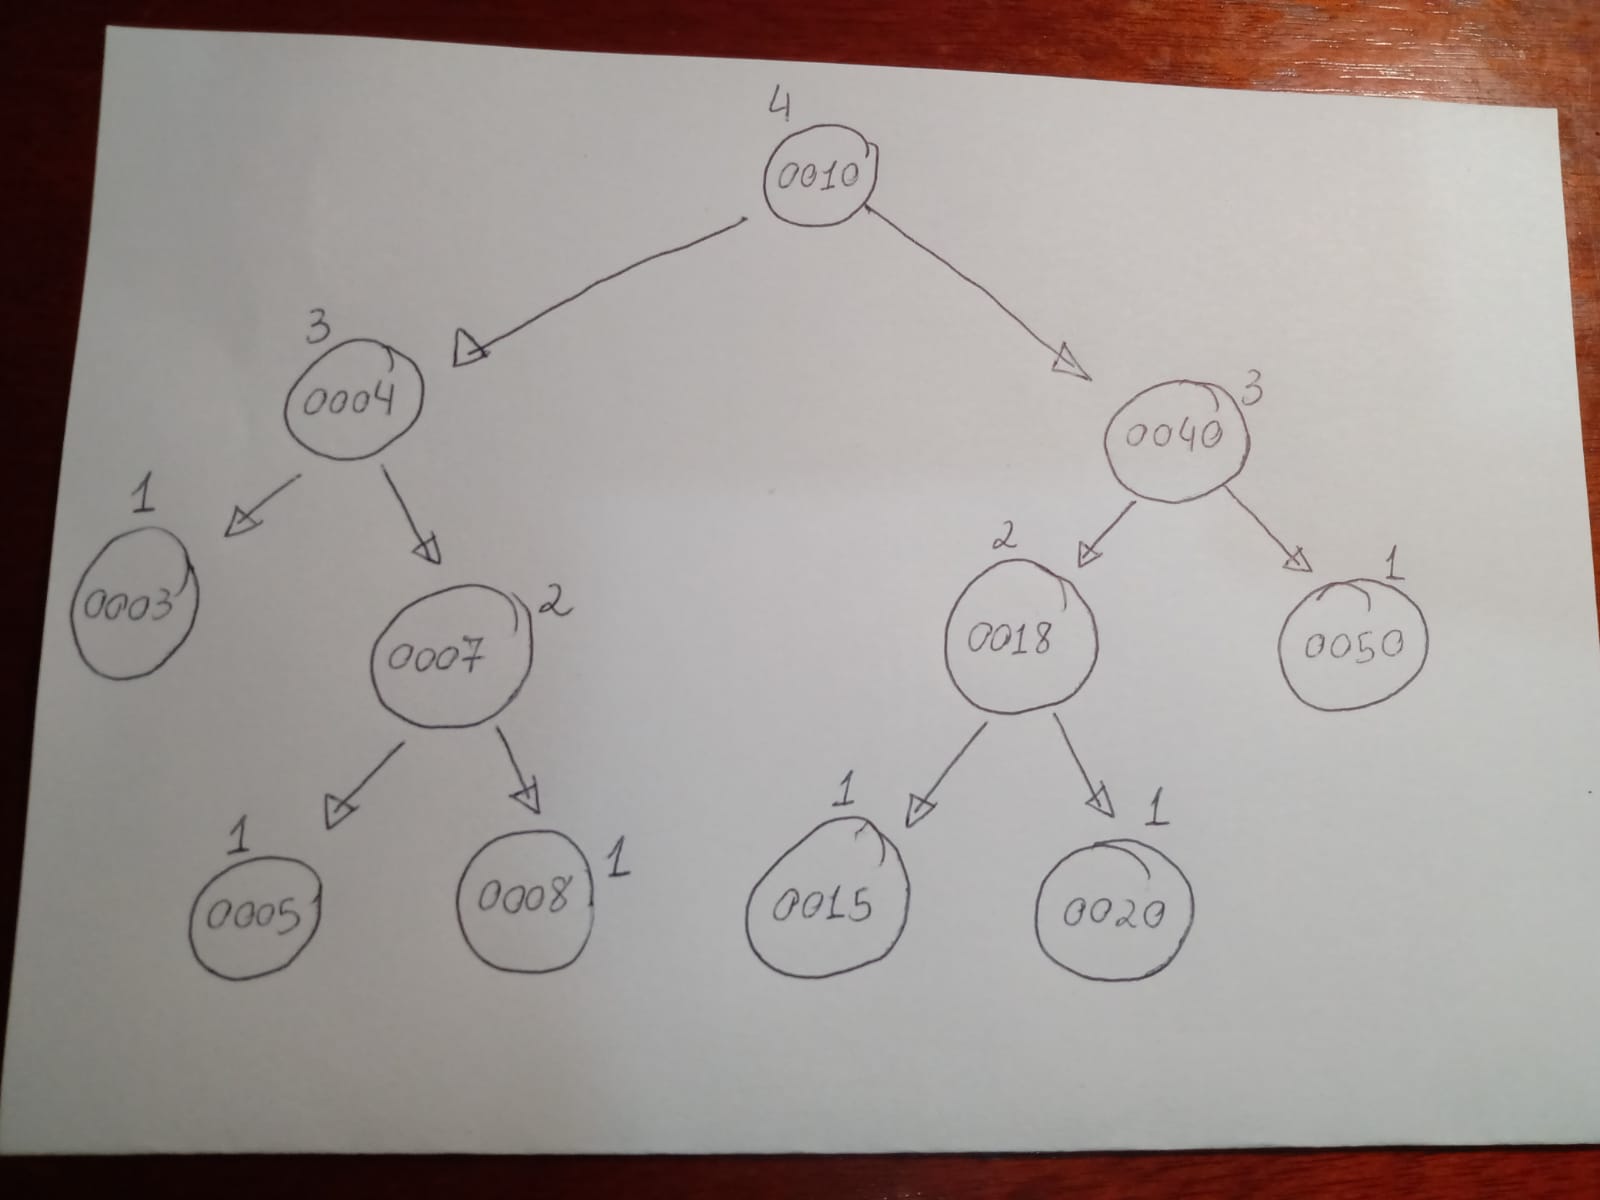 4
0010
3
0004
3
0040
1
0003
2
0007
2
0018
1
0050
1
0005
1
0008
1
0015
1
0020